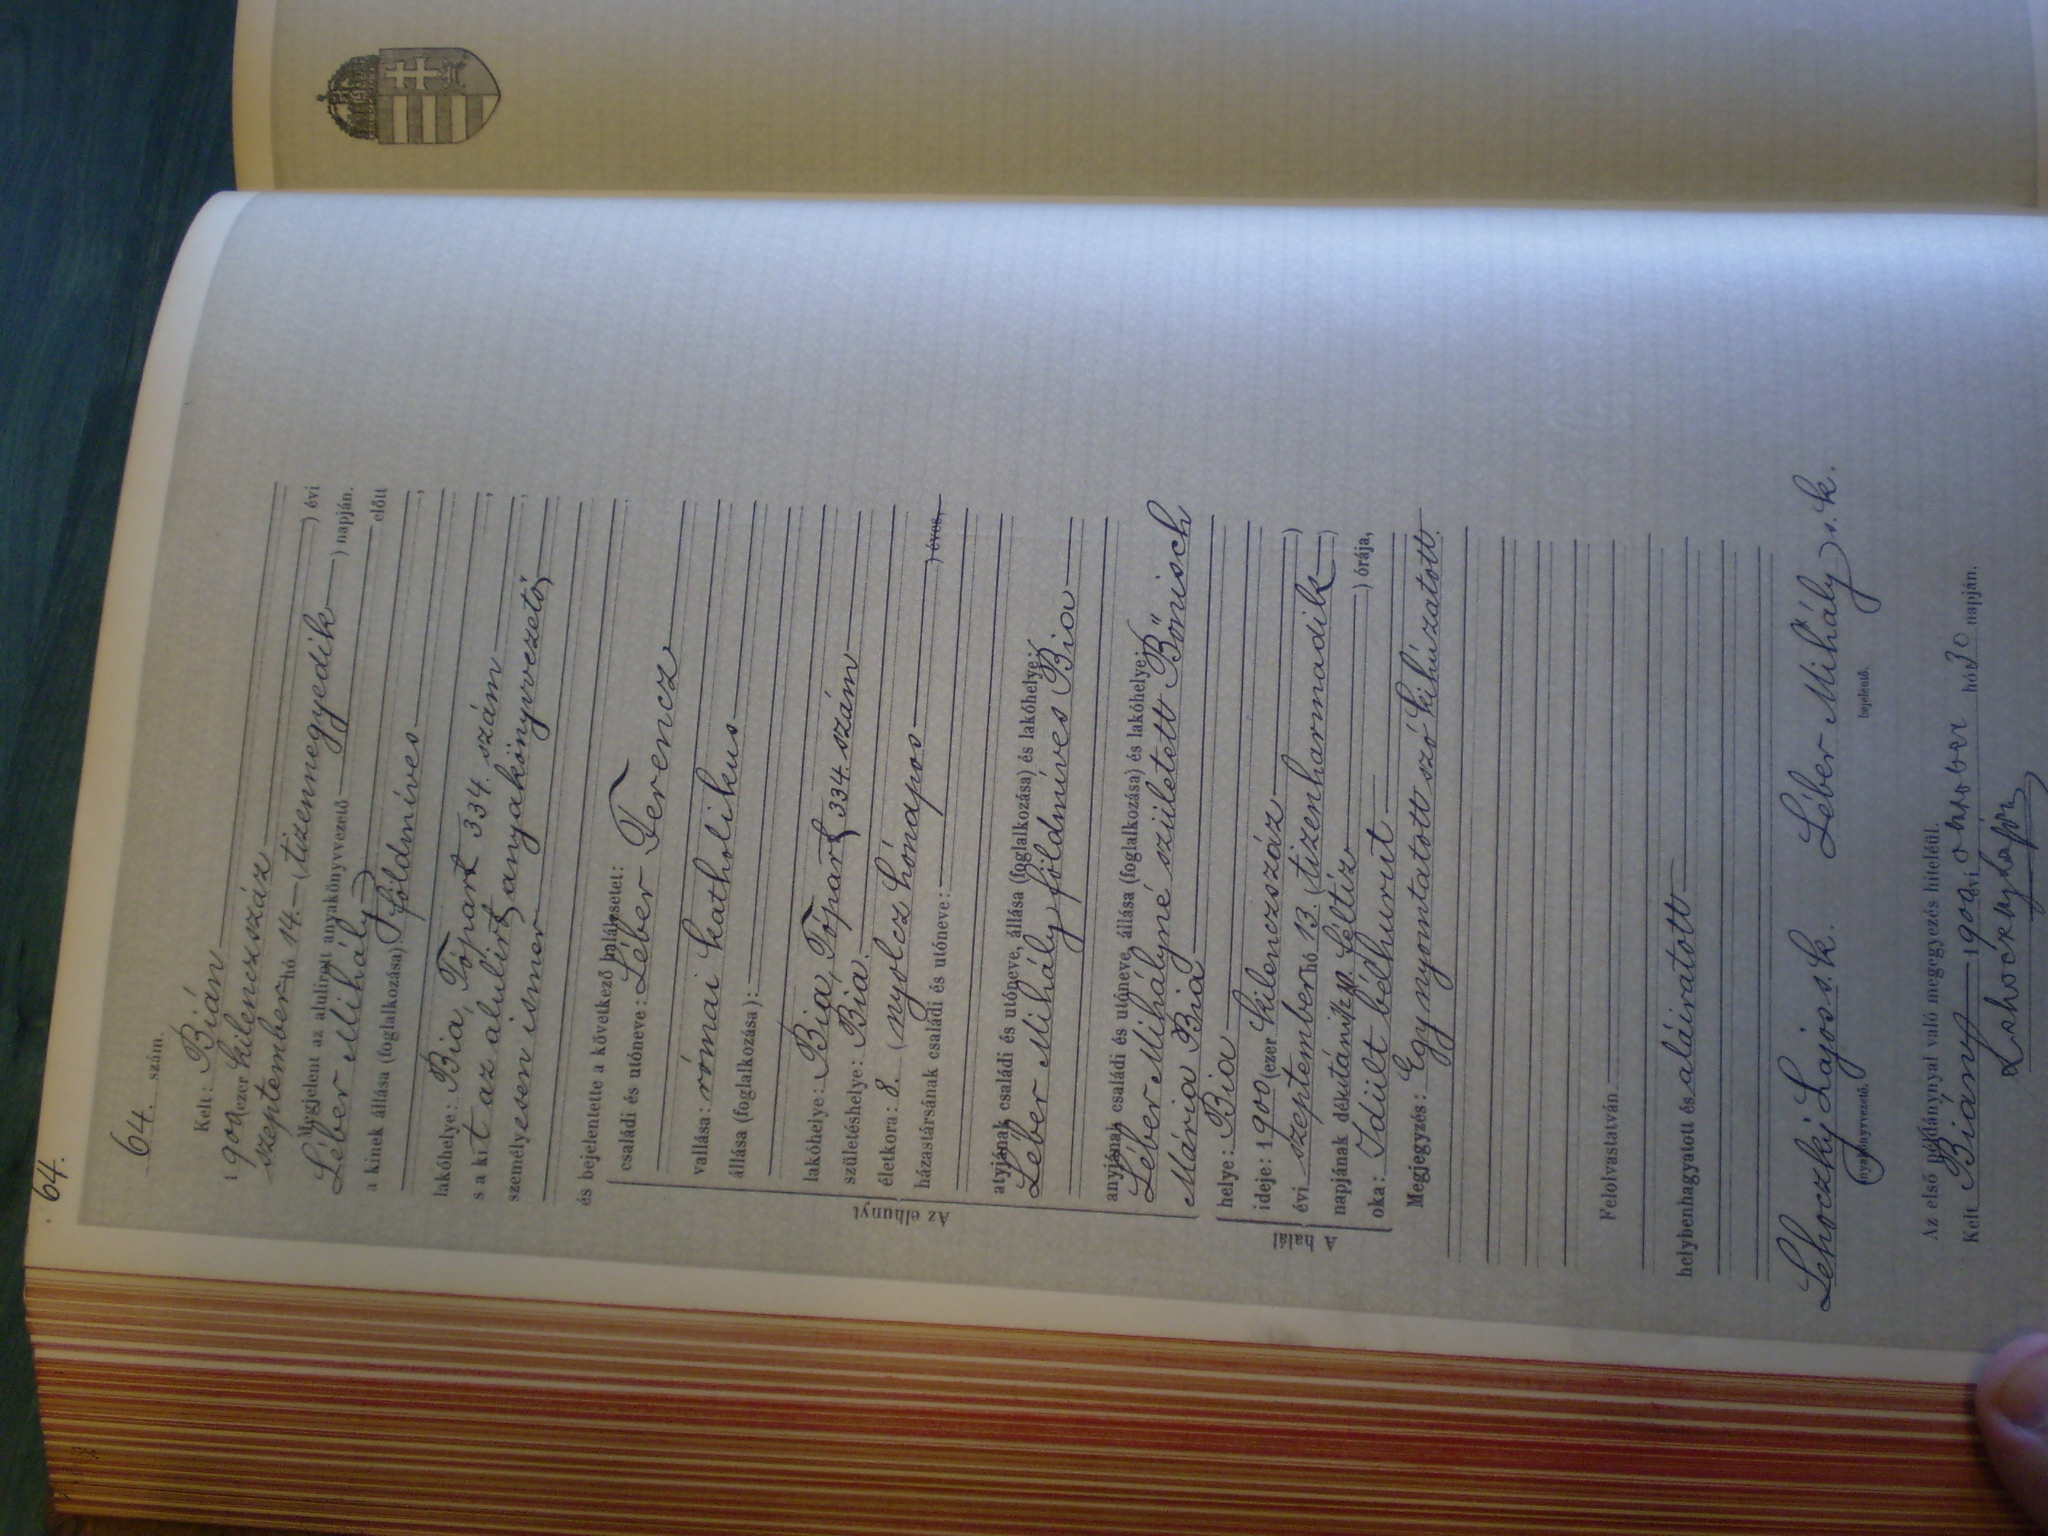 64.
64. szám.
Kelt: Bián
1900 (ezer kilenczszáz ) évi
szeptember hó 14. (tizennegyedik ) napján.
Megjelent az alulirott anyakönyvvezető előtt
Léber Mihály
a kinek állása (foglalkozása) földmíves,
lakóhelye: Bia, Tópart 334. szám,
s a kit az alulírt anyakönyvvezető,
személyesen ismer
és bejelentette a következő halálesetet:
családi és utóneve: Léber Ferencz
vallása: római katholikus
állása (foglalkozása):
lakóhelye: Bia, Tópart 334. szám
születéshelye: Bia.
életkora: 8. (nyolcz hónapos ) éves,
házastársának családi és utóneve:
Az elhunyt
atyjának családi és utóneve, állása (foglalkozása) és lakóhelye:
Léber Mihály földmíves Bia
anyjának családi és utóneve, állása (foglalkozása) és lakóhelye:
Léber Mihályné született Bőnisch
Mária Bia
A halál
helye: Bia
ideje: 1900 (ezer kilenczszáz )
évi szeptember hó 13. (tizenharmadik )
napjának délutáni féltíz ) órája,
oka: Idült bélhurut
Megjegyzés: Egy nyomtatott szó kihúzatott.
Felolvastatván
helybenhagyatott és aláiratott
Lehoczky Lajos s. k. Léber Mihály s. k.
anyakönyvvezető. bejelentő.
Az első példánynyal való megegyezés hiteléül.
Kelt Bián, 1900 évi október hó 30 napján.
Lehoczky Lajos